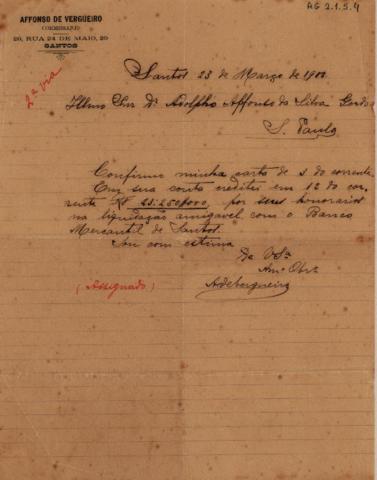 AG 2.1.5.4
AFFONSO DE VERGUEIRO
COMMISSARIO
20, RUA 24 DE MAIO, 20
SANTOS
2ª via
Santos 23 de Março de 1900
Illmo Snr Dr. Adolpho Affonso da Silva Gordo
S. Paulo
Confirmo minha carta de 3 do corrente.
Em sua conta creditei em 12 do cor-
rente Rs 23:250$000, por seus honorarios
na liquidação amigavel com o Banco
Mercantil de Santos.
Sou com estima
De V. Sª
Amº Obrº
(Assignado)
AdeVergueiro